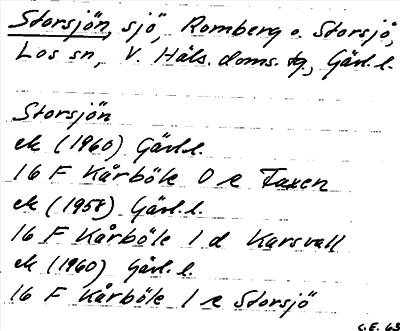 Storsjön, sjö, Romberg o. Storsjö,
Los sn, V. Häls. doms. tg., Gävl. l.
Storsjön
ek (1960) Gävl. l.
16 F Kårböle 0 e Taxen
ek (1958) Gävl. l.
16 F Kårböle 1 d Karsvall
ek (1960) Gävl. l.
16 F Kårböle 1 e Storsjö
C.E. 63